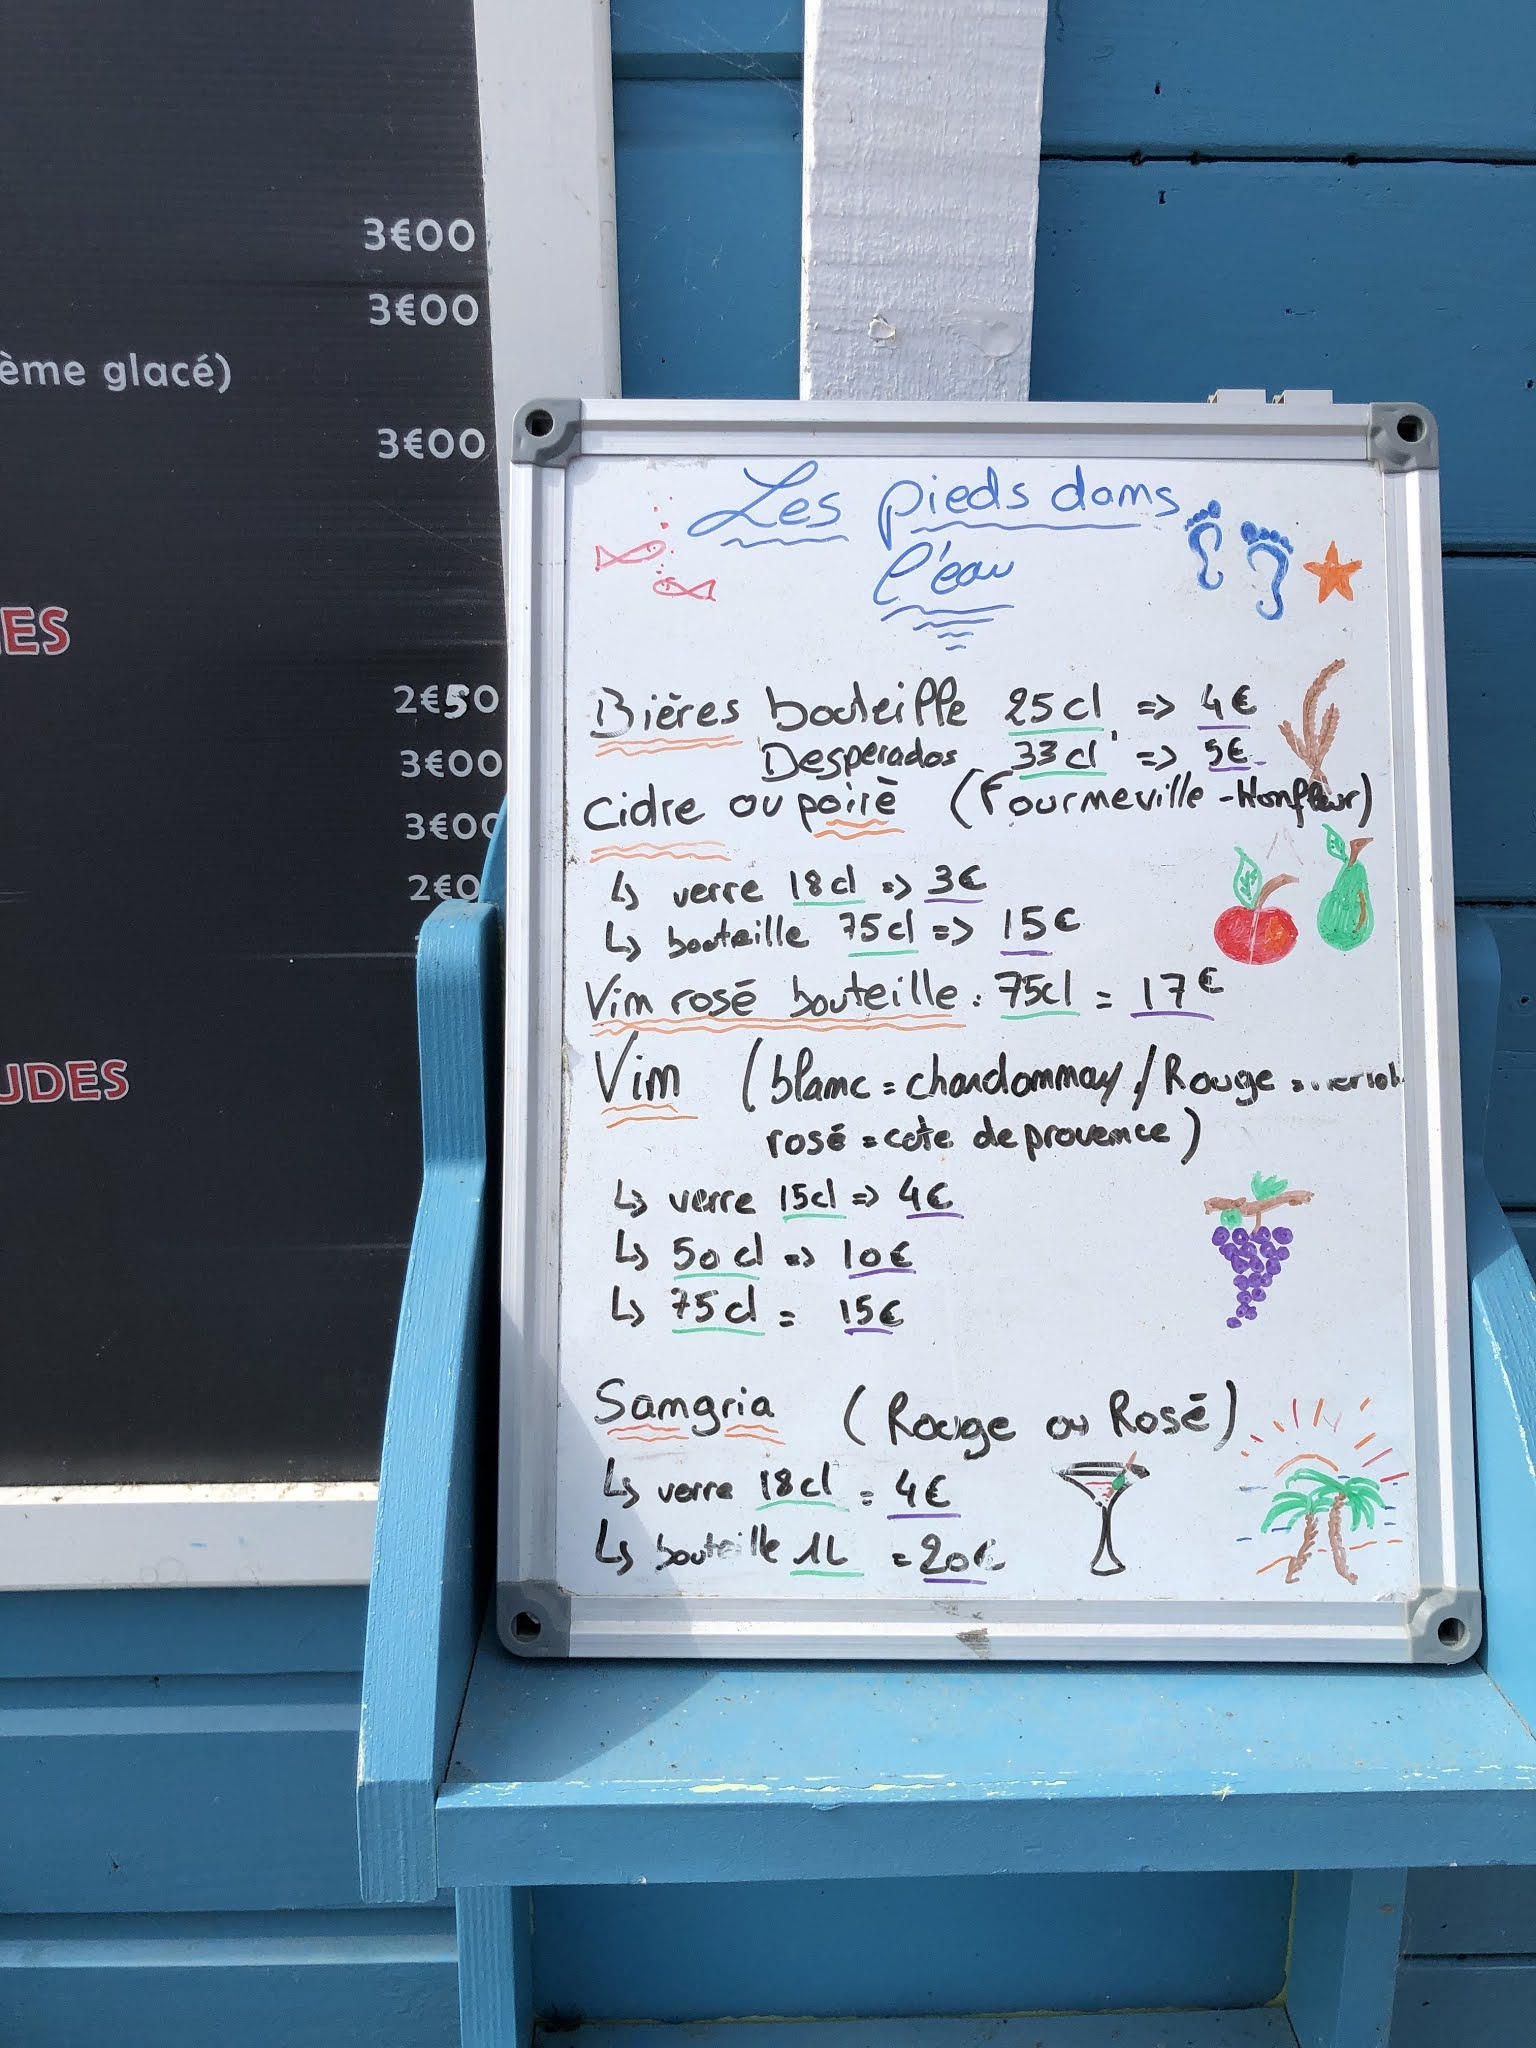 3€00
3€00
ème glacé)
3€00
ES
2€50
3€00
3€00
2€0
UDES
Les pieds dans
l'eau
Bières bouteille 25cl => 4€
Desperados 33cl => 5€
Cidre ou poiré (Fourneville - Honfleur)
↳ verre 18cl => 3€
↳ bouteille 75cl => 15€
Vin rosé bouteille : 75cl = 17€
Vin (blanc = chardonnay / Rouge =
rosé = cote de provence)
↳ verre 15cl => 4€
↳ 50cl => 10€
↳ 75cl = 15€
Sangria (Rouge ou Rosé)
↳ verre 18cl = 4€
↳ bouteille 1L = 20€